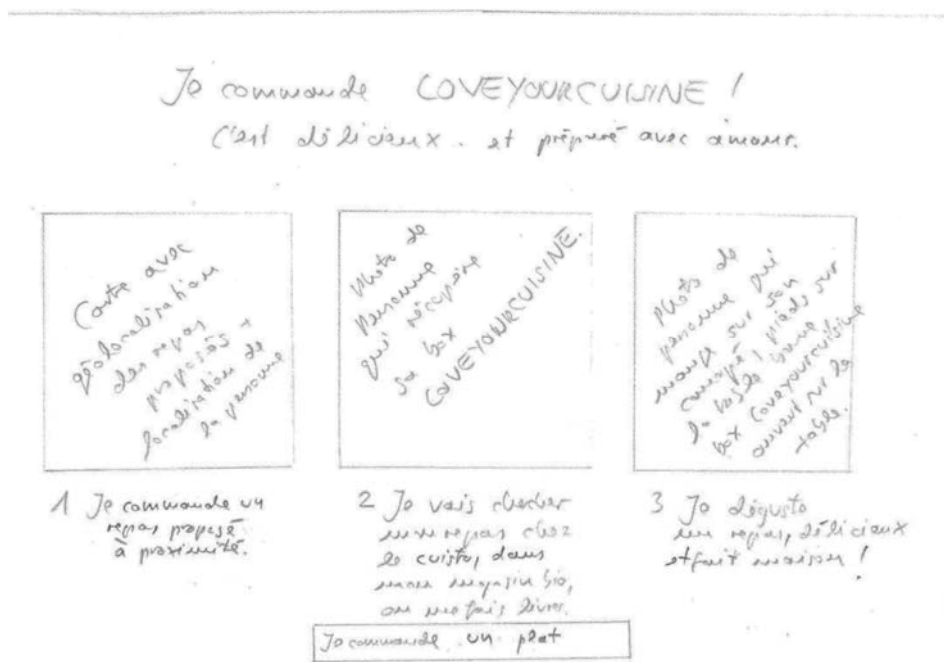 Je commande COVEYOURCUISINE !
C'est délicieux . et préparé avec amour.
Carte avec
géolocalisation
des repas
proposés +
localisation de
la personne
Photo de
personne
qui récupère
sa box
COVEYOURCUISINE.
photo de
personne qui
mange sur son
canapé, pieds sur
la table basse
box Coveyourcuisine
ouvert sur la
table.
1 Je commande un
repas proposé
à proximité.
2 Je vais chercher
mon repas chez
le cuisto, dans
mon magasin bio,
ou me fais livrer.
3 Je déguste
un repas, délicieux
et fait maison !
Je commande un plat